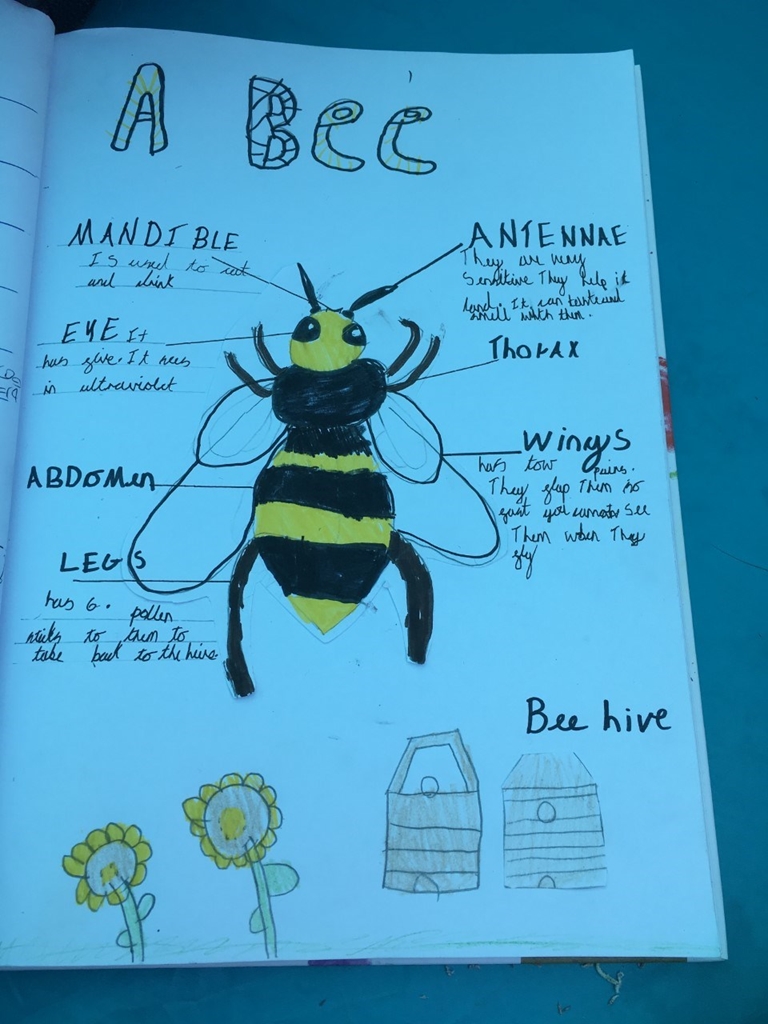 A Bee
MANDIBLE
Is used to eat
and drink
EYE It
has five. It sees
in ultraviolet
ABDOMEN
LEGS
has 6. pollen
sticks to them to
take back to the hive.
ANTENNAE
They are very
sensitive They help it
land. It can taste and
smell with them.
Thorax
Wings
has tow pairs.
They flap Them so
fast you cannot See
Them when They
fly
Bee hive